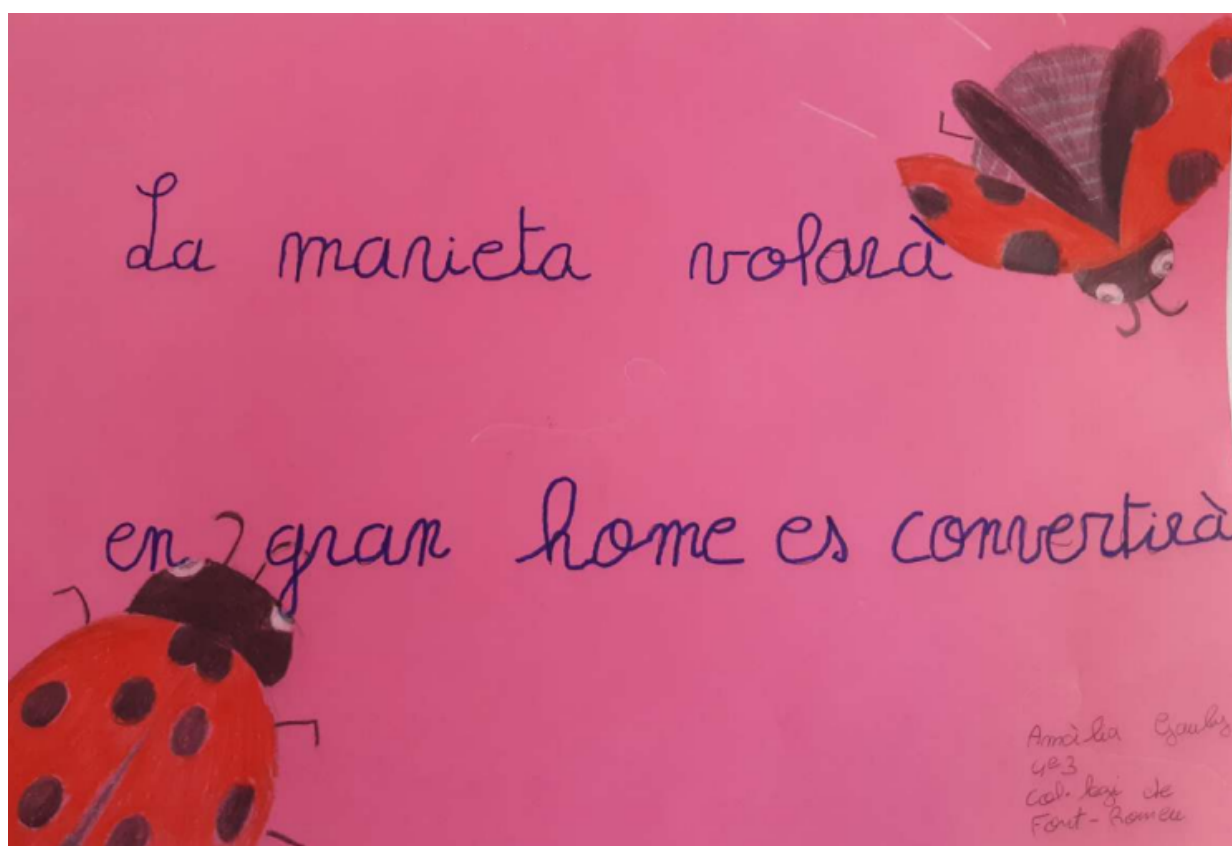 La marieta volarà
en gran home es convertirà
Amàlia
4e3
Col·legi de
Font-Romeu